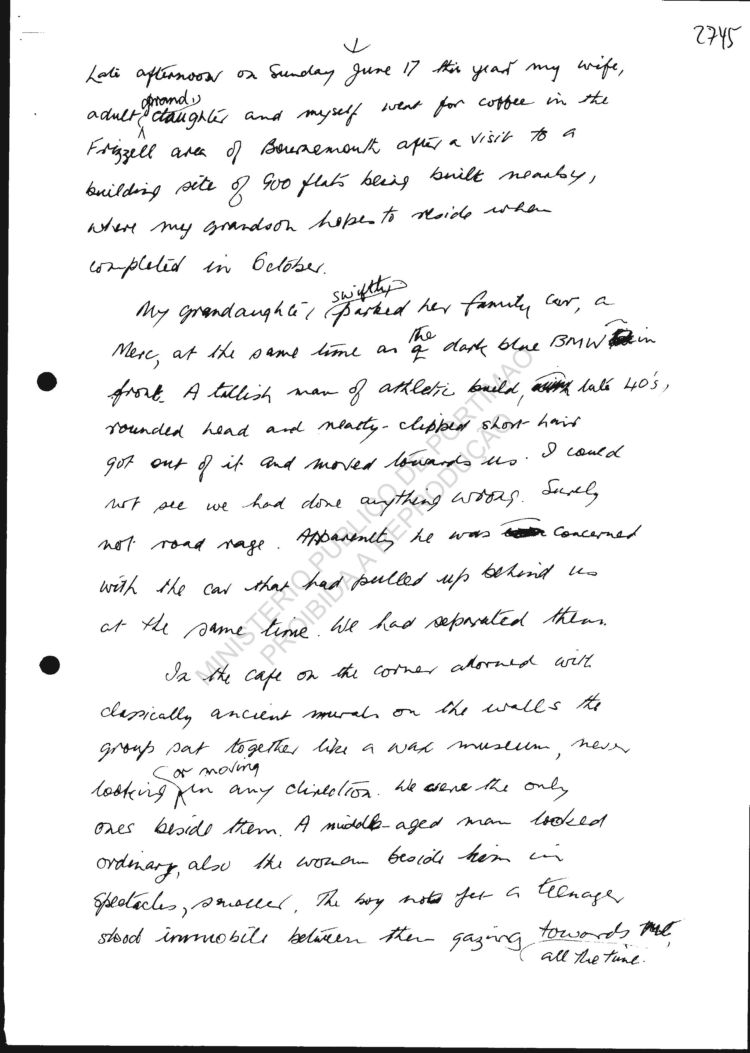 2745
Late afternoon on Sunday June 17 this year my wife,
adult grand daughter and myself went for coffee in the
Frizzell area of Bournemouth after a visit to a
building site of 900 flats being built nearby,
where my grandson hopes to reside when
completed in October.
My grandaughter swiftly parked her family car, a
Merc, at the same time as the dark blue BMW in
front. A tallish man of athletic build, late 40's,
rounded head and neatly-clipped short hair
got out of it and moved towards us. I could
not see we had done anything wrong. Surely
not road rage. Apparently he was concerned
with the car that had pulled up behind us
at the same time. We had separated them.
In the cafe on the corner adorned with
classically ancient murals on the walls the
group sat together like a wax museum, never
looking or moving in any direction. We were the only
ones beside them. A middle-aged man looked
ordinary, also the woman beside him in
spectacles, smaller. The boy not yet a teenager
stood immobile between them gazing towards me,
all the time.
MINISTERIO PUBLICO DE PORTIMAO
PROIBIDA A REPRODUCAO